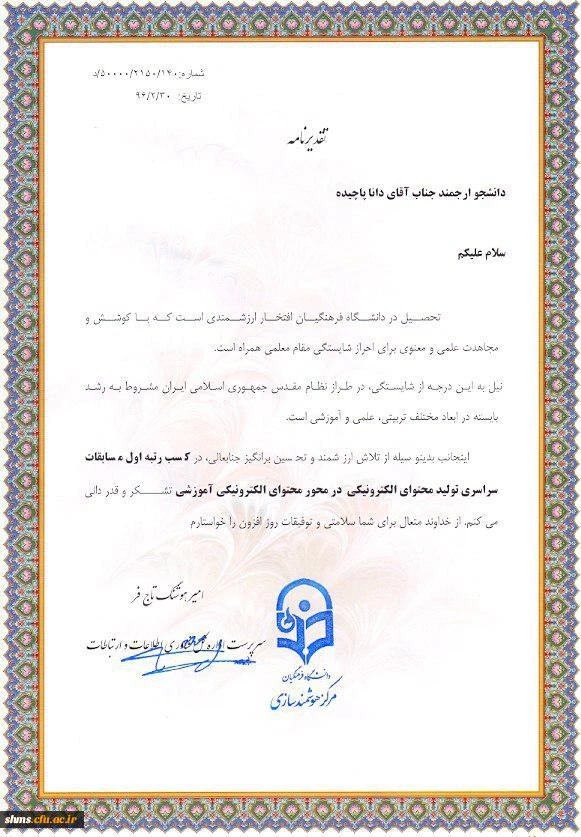 شماره: ۵۰۰۰۰/۲۱۵۰/۱۴۰/د
تاریخ: ۹۶/۲/۳۰
تقدیرنامه
دانشجو ارجمند جناب آقای دانا پاچیده
سلام علیکم
تحصیل در دانشگاه فرهنگیان افتخار ارزشمندی است که با کوشش و
مجاهدت علمی و معنوی برای احراز شایستگی مقام معلمی همراه است.
نیل به این درجه از شایستگی، در طراز نظام مقدس جمهوری اسلامی ایران مشروط به رشد
بایسته در ابعاد مختلف تربیتی، علمی و آموزشی است.
اینجانب بدینو سیله از تلاش ارز شمند و تحسین برانگیز جنابعالی، در کسب رتبه اول مسابقات
سراسری تولید محتوای الکترونیکی در محور محتوای الکترونیکی آموزشی تشکر و قدر دانی
می کنم. از خداوند متعال برای شما سلامتی و توفیقات روز افزون را خواستارم
امیر هوشنگ تاج فر
سرپرست اداره کل فناوری اطلاعات و ارتباطات
دانشگاه فرهنگیان
مرکز هوشمندسازی
shms.cfu.ac.ir